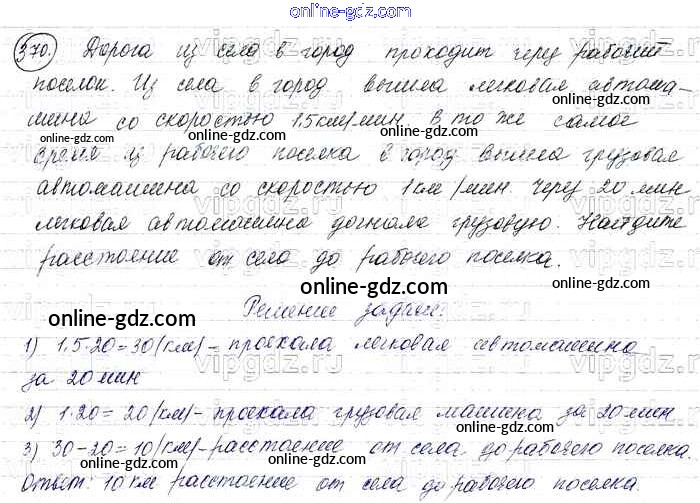 online-gdz.com
370. Дорога из села в город проходит через рабочий
поселок. Из села в город вышла легковая автома-
шина со скоростью 1.5км/мин. В то же самое
online-gdz.com online-gdz.com online-gdz.com
время из рабочего поселка в город вышла грузовая
автомашина со скоростью 1км/мин. Через 20 мин
легковая автомашина догнала грузовую. Найдите
online-gdz.com online-gdz.com online-gdz.com
расстояние от села до рабочего поселка.
online-gdz.com
Решение задачи:
online-gdz.com online-gdz.com
1) 1.5·20=30(км)-проехала легковая автомашина
за 20мин
online-gdz.com online-gdz.com
2) 1·20=20(км)-проехала грузовая машина за 20мин
3) 30-20=10(км)-расстояние от села до рабочего поселка.
online-gdz.com online-gdz.com online-gdz.com
Ответ: 10км расстояние от села до рабочего поселка.